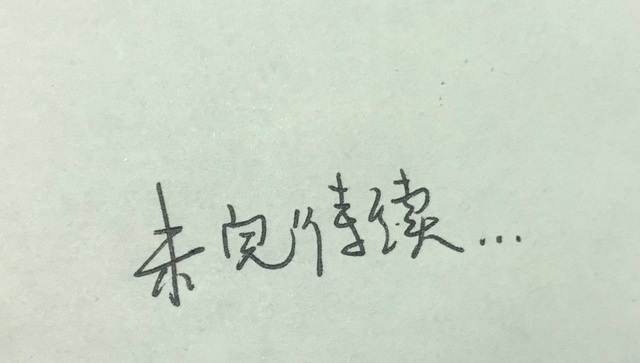 未完待续...